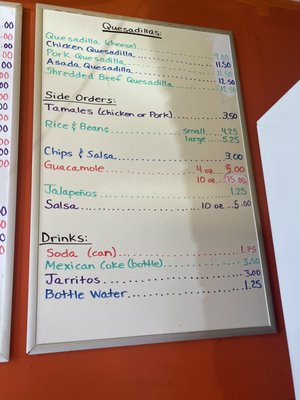 Quesadillas:
Quesadilla (cheese)........ 9.00
Chicken Quesadilla........ 11.50
Pork Quesadilla........ 11.50
Asada Quesadilla........ 12.50
Shredded Beef Quesadilla........ 12.50
Side Orders:
Tamales (chicken or Pork)........ 3.50
Rice & Beans........ small.... 4.25
large.... 5.25
Chips & Salsa........ 3.00
Guacamole........ 4 oz.... 5.00
10 oz.... 15.00
Jalapeños........ 1.25
Salsa........ 10 oz... 5.00
Drinks:
Soda (can)........ 1.75
Mexican Coke (bottle)........ 3.50
Jarritos........ 3.00
Bottle Water........ 1.25